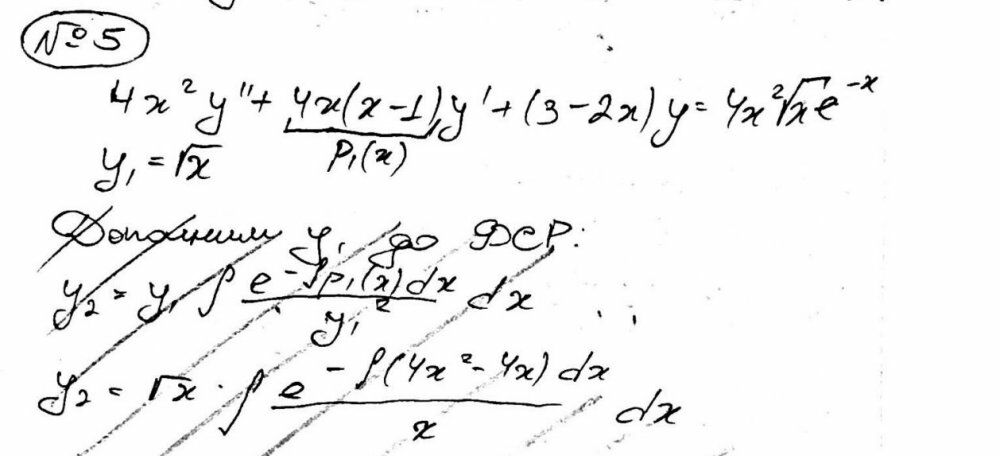 № 5
4x² y'' + 4x(x-1)y' + (3-2x)y = 4x²√x e^{-x}
p₁(x)
y₁ = √x
Дополним y₁ до ФСР:
y₂ = y₁ ∫ e^{-∫p₁(x)dx} / y₁² dx
y₂ = √x · ∫ e^{-∫(4x²-4x)dx} / x dx